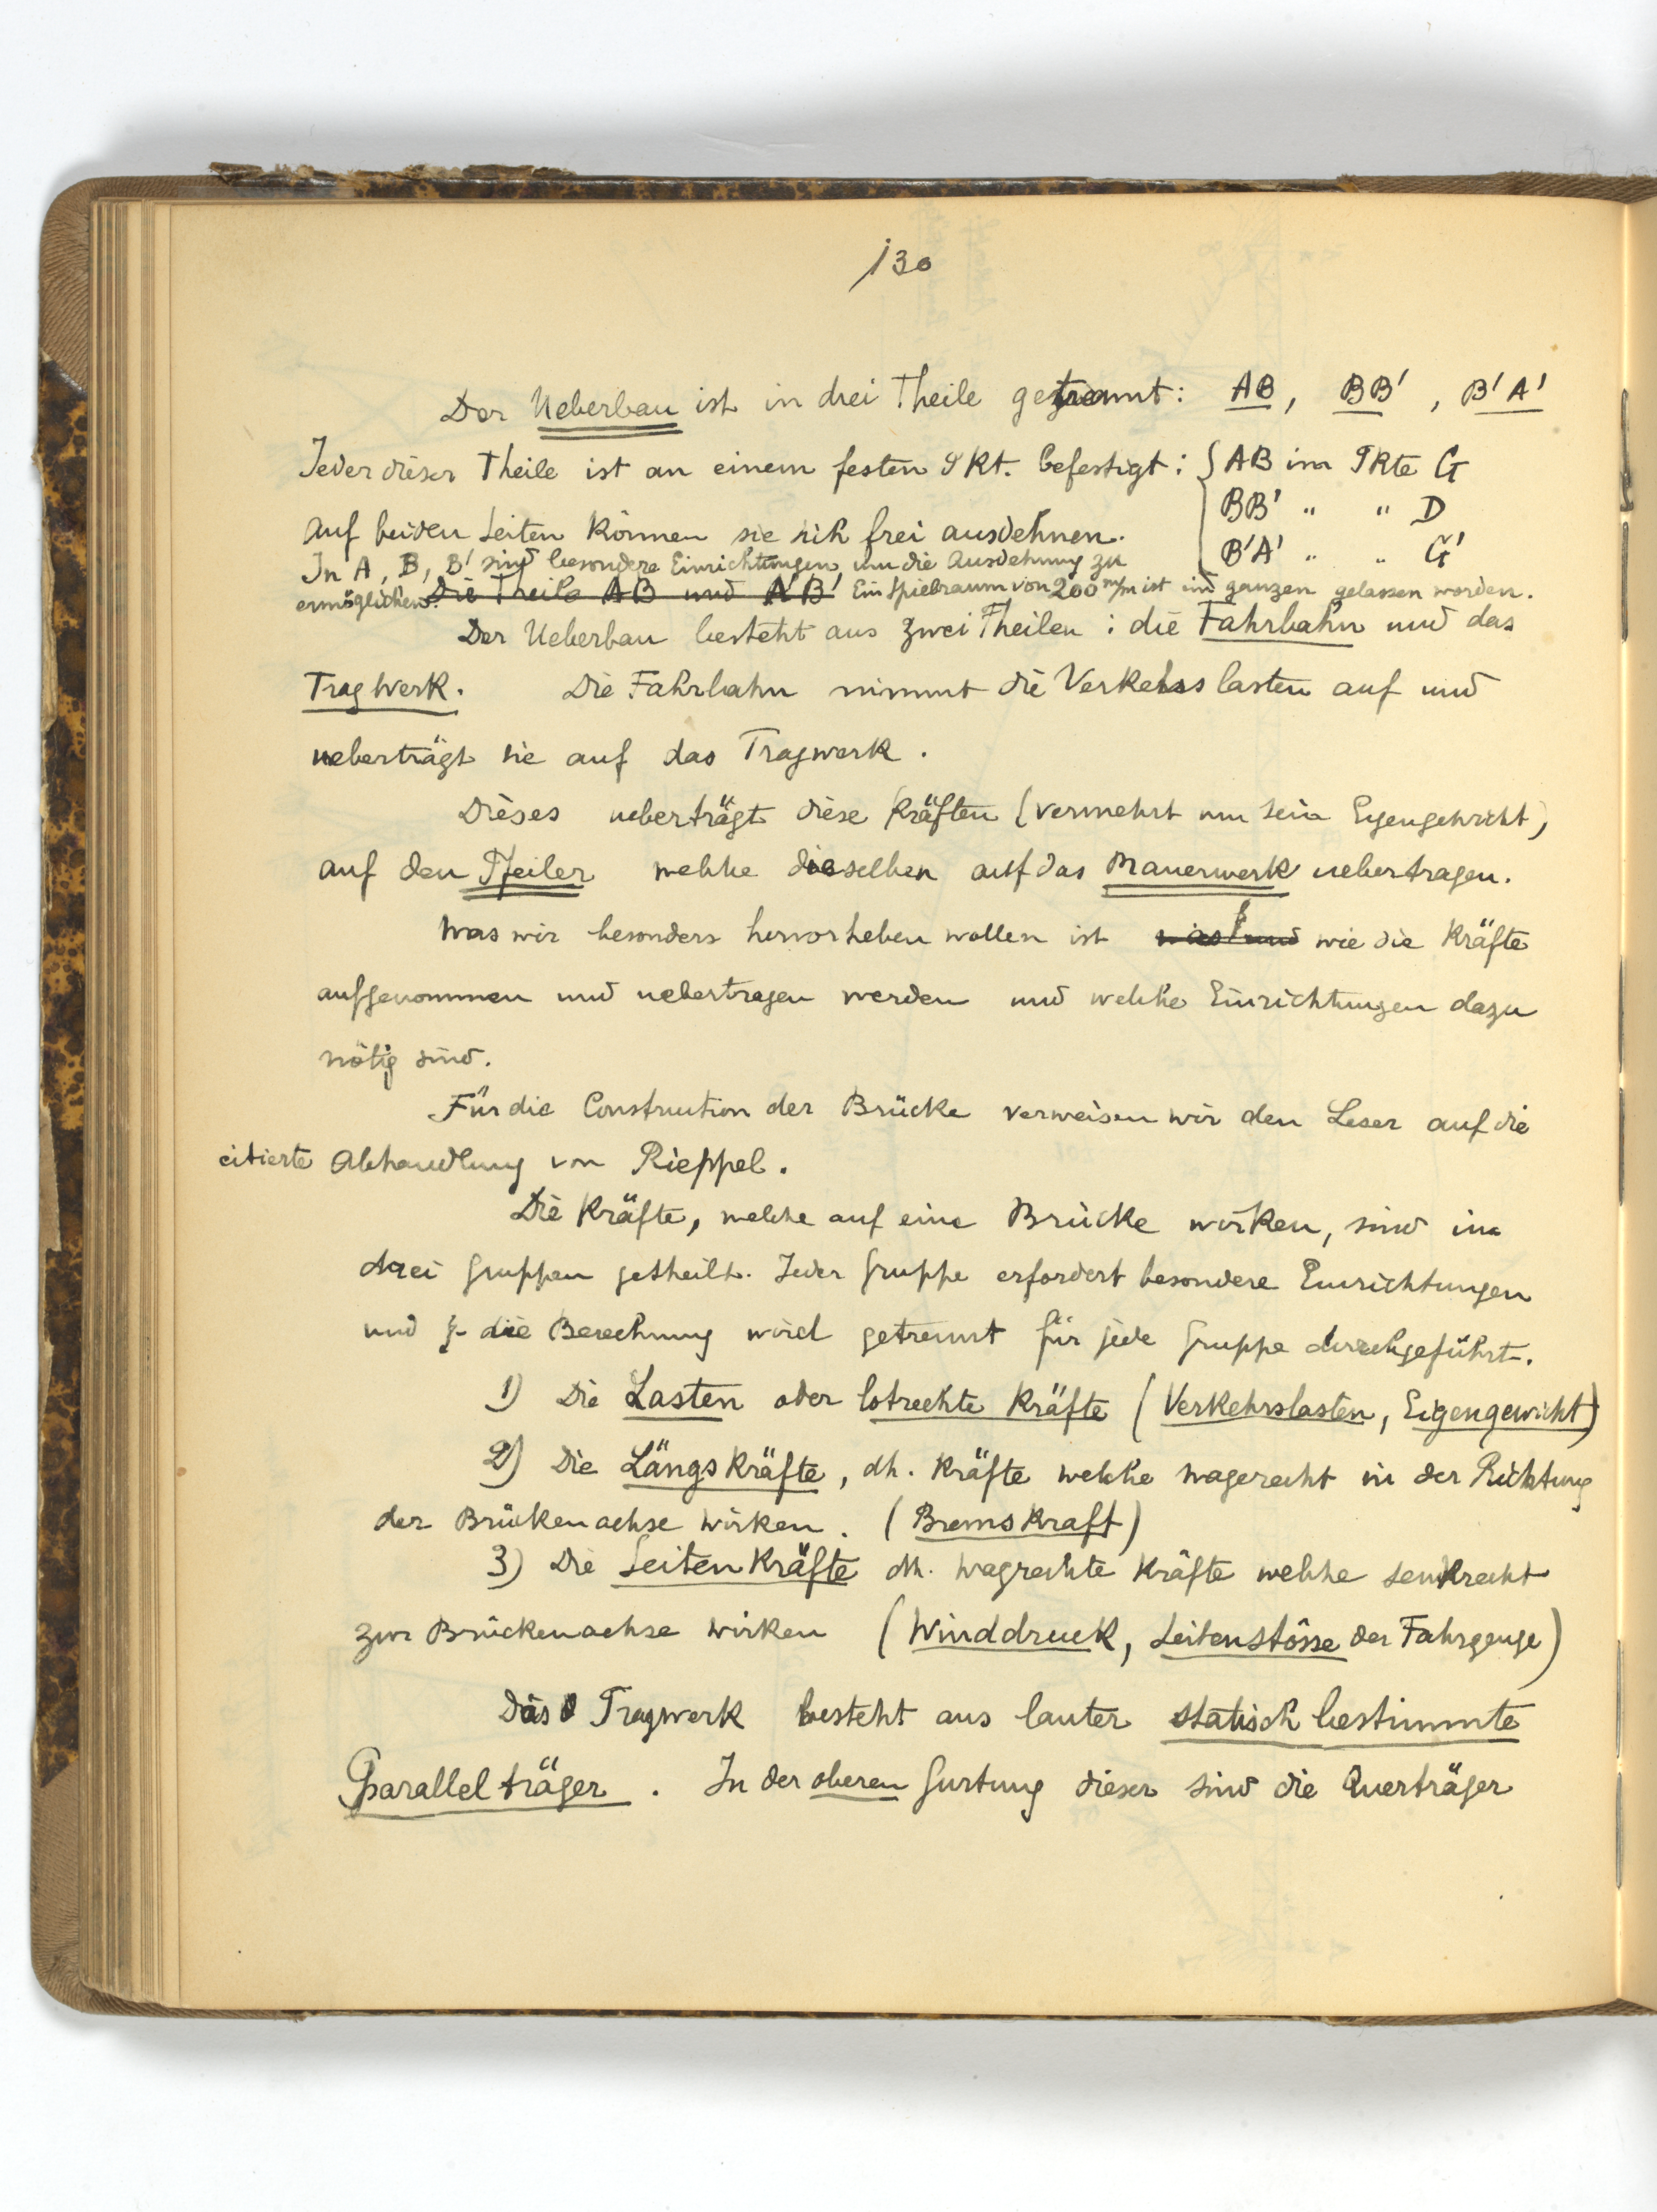 130
Der Ueberbau ist in drei Theile getrennt: AB, BB', B'A'
Jeder dieser Theile ist an einem festen Pkt. befestigt: { AB im Pkte G
BB' " " D
Auf beiden Seiten können sie sich frei ausdehnen.
B'A' " " G'
In A, B, B' sind besondere Einrichtungen um die Ausdehnung zu
ermöglichen. Die Theile AB und A'B' Ein Spielraum von 200 m/m ist im ganzen gelassen worden.
Der Ueberbau besteht aus zwei Theilen: die Fahrbahn und das
Tragwerk. Die Fahrbahn nimmt die Verkehrslasten auf und
ueberträgt sie auf das Tragwerk.
Dieses ueberträgt diese Kräften (vermehrt um sein Eigengewicht)
auf den Pfeiler welche dieselben auf das Mauerwerk uebertragen.
Was wir besonders hervorheben wollen ist wie die Kräfte
aufgenommen und uebertragen werden und welche Einrichtungen dazu
nötig sind.
Für die Construction der Brücke verweisen wir den Leser auf die
citierte Abhandlung von Rieppel.
Die Kräfte, welche auf eine Brücke wirken, sind in
drei Gruppen getheilt. Jeder Gruppe erfordert besondere Einrichtungen
und die Berechnung wird getrennt für jede Gruppe durchgeführt.
1) Die Lasten oder lotrechte Kräfte (Verkehrslasten, Eigengewicht)
2) Die Längskräfte, dh. Kräfte welche wagerecht in der Richtung
der Brückenachse wirken. (Bremskraft)
3) Die Seitenkräfte dh. wagrechte Kräfte welche senkrecht
zur Brückenachse wirken (Winddruck, Seitenstösse der Fahrzeuge)
Das Tragwerk besteht aus lauter statisch bestimmte
Parallelträger. In der oberen Gurtung dieser sind die Querträger